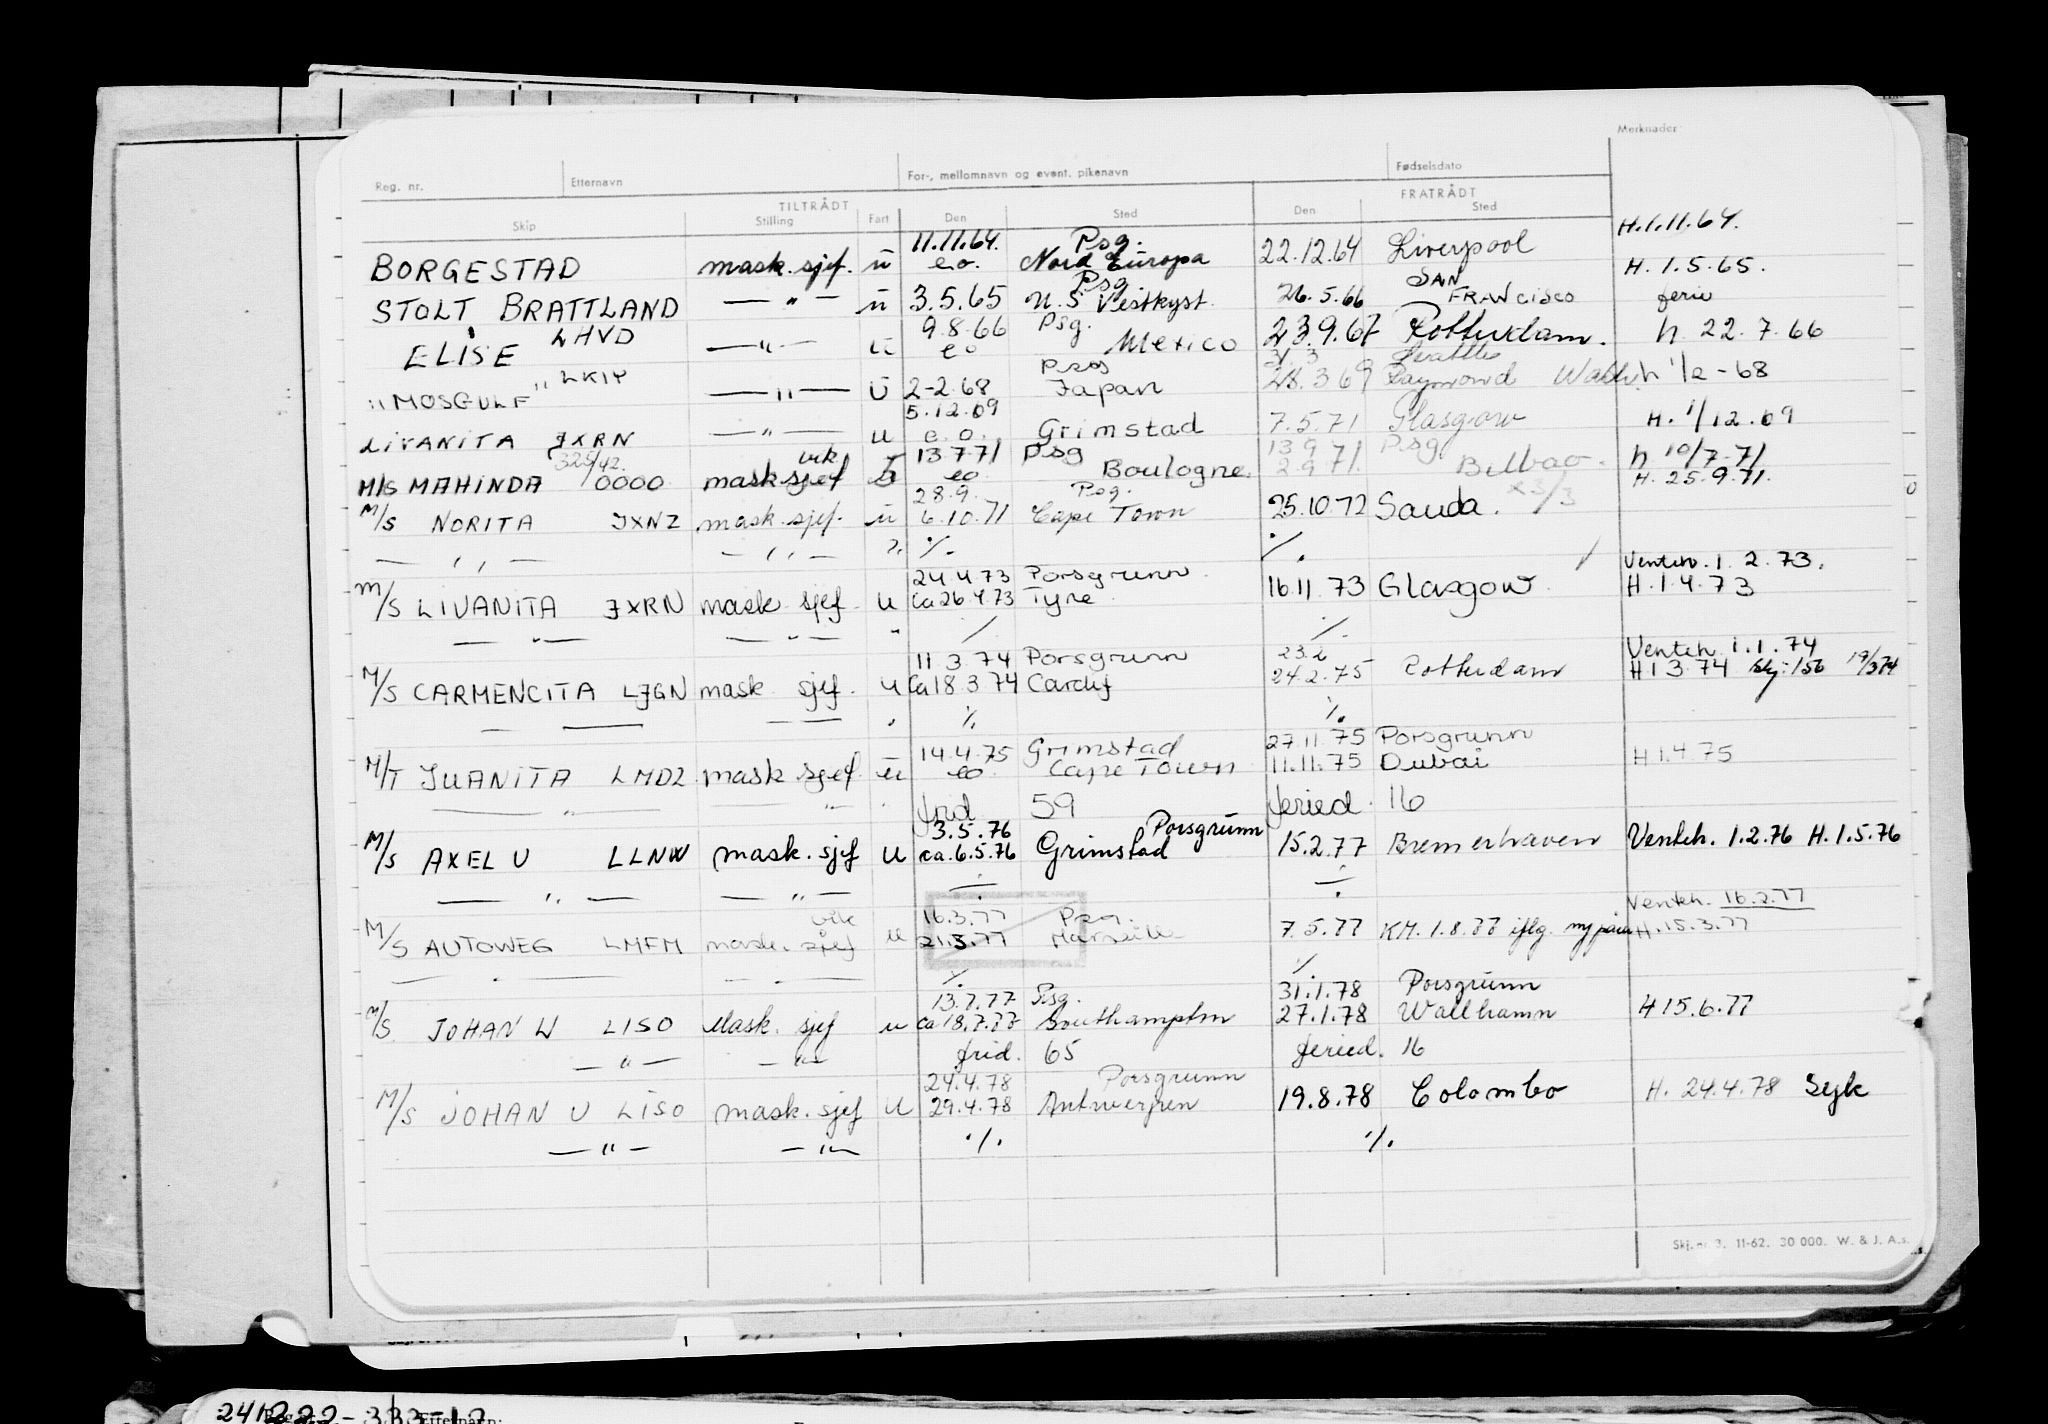 Merknader:
Reg. nr. Etternavn For-, mellomnavn og event. pikenavn Fødselsdato
TILTRÅDT FRATRÅDT
Skip Stilling Fart Den Sted Den Sted
11.11.64. Psg. H.1.11.64.
BORGESTAD mask. sjef. u e.o. Nord Europa 22.12.64 Liverpool
Psg SAN H. 1.5.65.
STOLT BRATTLAND — " — u 3.5.65 U.S Vestkyst. 26.5.66 FRANCISCO ferie
LHVD 9.8.66 Psg.
ELISE — " — u eo Mexico 23.9.67 Rotterdam. h. 22.7.66
LKIP Psg 31.3 Seattle
"MOSGULF" — " — u 2-2.68 Japan 28.3 69 Raymond h 1/2-68
5.12.69
LIVANITA JXRN — " — u e.o. Grimstad 7.5.71 Glasgow H. 1/12.69
325/42. vik 13.7.71 Psg 13 9 71 Psg h 10/7-71
M/S MAHINDA 0000 mask sjef eo Boulogne. 2.9.71. Bilbao. H. 25.9.71.
28.9. Psg. x3/3
M/S NORITA JXNZ mask. sjef. u 6.10.71 Cape Town 25.10.72 Sauda.
— " — — " — " ./. ./.
24.4.73 Porsgrunn. Ventep. 1.2.73.
M/S LIVANITA JXRN mask. sjef. u ca 26.4.73 Tyne. 16.11.73 Glasgow. H.1.4.73
— " — — " — " ./. ./.
11.3.74 Porsgrunn 23.2 Venteh. 1.1.74
M/S CARMENCITA LJGN mask. sjef. u ca 18 3 74 Cardif 24.2.75 Rotterdam H 1 3.74 skj: 156 19/3 74
— — — — " ./. ./.
14.4.75 Grimstad 27.11.75 Porsgrunn
M/T JUANITA LMDZ mask sjef. u eo Cape Town 11.11.75 Dubai H 1.4.75
— " — — " — " frid 59 feried. 16
3.5.76 Porsgrunn
M/S AXEL U LLNW mask. sjef u ca. 6.5.76 Grimstad 15.2.77 Bremerhaven Venteh. 1.2.76 H. 1.5.76
— " — — " — ./. ./.
vik 16.3.77 Psg. Venteh. 16.2.77
M/S AUTOWEG LMFM mask. sjef u 21.3.77 Marseille 7.5.77 KM. 1.8.77 iflg. H.15.3.77
— " — — — ./. ./.
13.7.77 Psg. 31.1.78 Porsgrunn
M/S. JOHAN U LISO Mask. sjef u ca 18.7.77 Southampton 27.1.78 Wallhamn H 15.6.77
— " — — " — frid. 65 feried. 16
24.4.78 Porsgrunn
M/S JOHAN U LISO mask. sjef u 29.4.78 Antwerpen 19.8.78 Colombo H. 24.4.78 Syk
— " — — " — ./. ./.
Skj. nr. 3. 11-62. 30 000. W. & J. A.s.